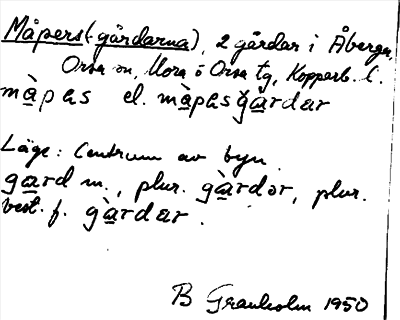 Måpers(-gårdarna), 2 gårdar i Åberga,
Orsa sn, Mora o Orsa tg, Kopparb. l.
màpas el. màpasgardar
Läge: Centrum av byn
gard m., plur. gàrdər, plur.
best. f. gàrdar.
B Granholm 1950